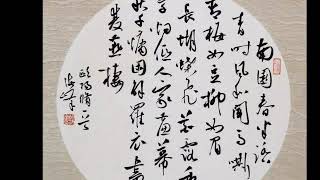 南園春半踏
青时风和闻马嘶
青梅如豆柳如眉
日長蝴蝶飞花露重
草烟低人家帘幕
垂秋千慵困解罗衣畫
堂双燕棲
欧陽脩